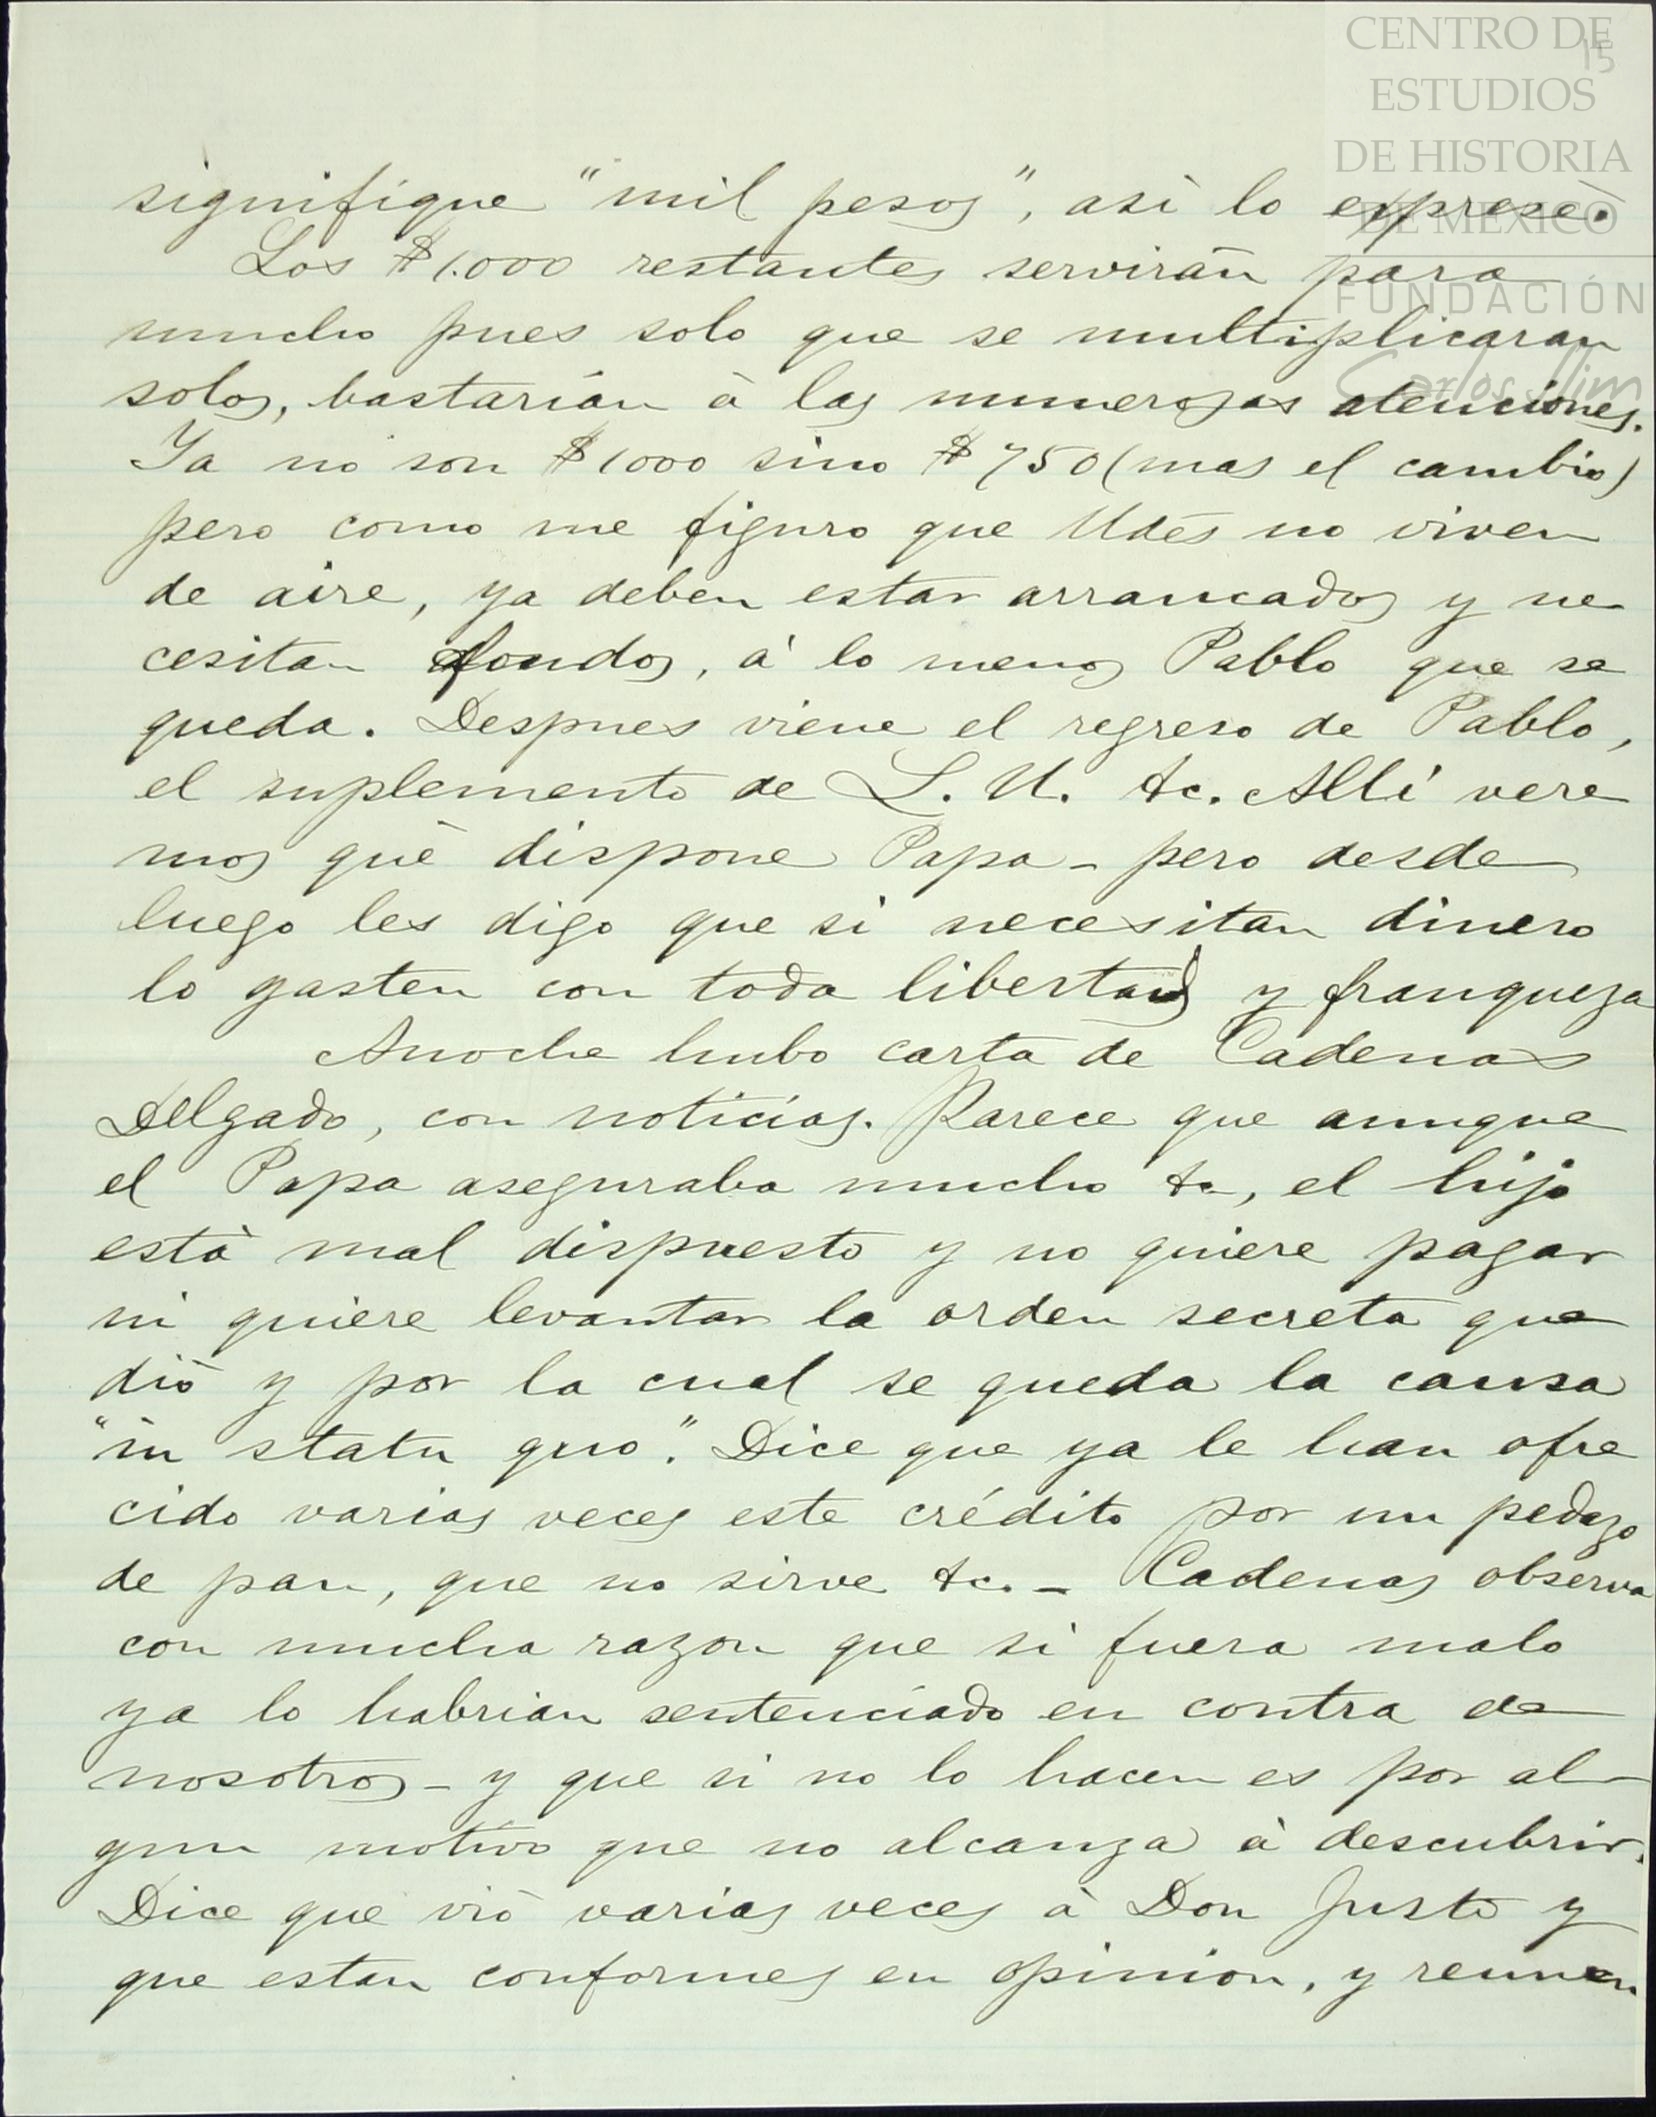 CENTRO DE
ESTUDIOS
DE HISTORIA
DE MEXICO
FUNDACIÓN
Carlos Slim
15
signifique "mil pesos", asi lo expresé.
Los $1.000 restantes servirán para
mucho pues solo que se multiplicaran
solos, bastarían à las numerosas atenciones.
Ya no son $1000 sino $750 (mas el cambio)
pero como me figuro que Udes no viven
de aire, ya deben estar arrancados y ne
cesitan fondos, á lo menos Pablo que se
queda. Despues viene el regreso de Pablo,
el suplemento de L. U. &c. Allí vere
mos qué dispone Papa - pero desde
luego les digo que si necesitan dinero
lo gasten con toda libertad y franqueza
Anoche hubo carta de Cadenas
Delgado, con noticias. Parece que aunque
el Papa aseguraba mucho &c, el hijo
està mal dispuesto y no quiere pagar
ni quiere levantar la orden secreta que
diò y por la cual se queda la causa
"in statu quo". Dice que ya le han ofre
cido varias veces este crédito por un pedazo
de pan, que no sirve &c. - Cadenas observa
con mucha razon que si fuera malo
ya lo habrian sentenciado en contra de
nosotros - y que si no lo hacen es por al-
gun motivo que no alcanza à descubrir.
Dice que viò varias veces à Don Justo y
que estan conformes en opinion, y reunen